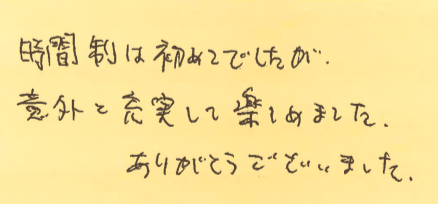 時間制は初めてでしたが、
意外と充実して楽しめました。
ありがとうございいました。